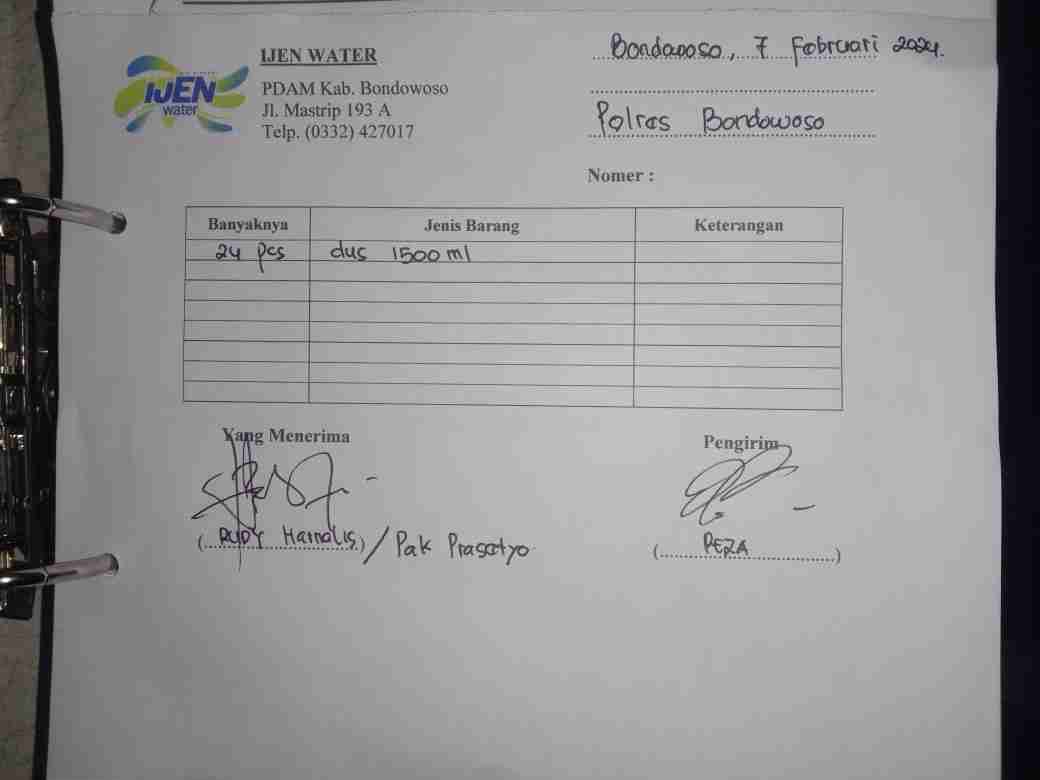 IJEN WATER
PDAM Kab. Bondowoso
Jl. Mastrip 193 A
Telp. (0332) 427017
IJEN
water
Bondowoso, 7 Februari 2024.
Polres Bondowoso
Nomer :
Banyaknya Jenis Barang Keterangan
24 pcs dus 1500 ml
Yang Menerima Pengirim
(RUDY) / Pak Prasetyo (REZA)